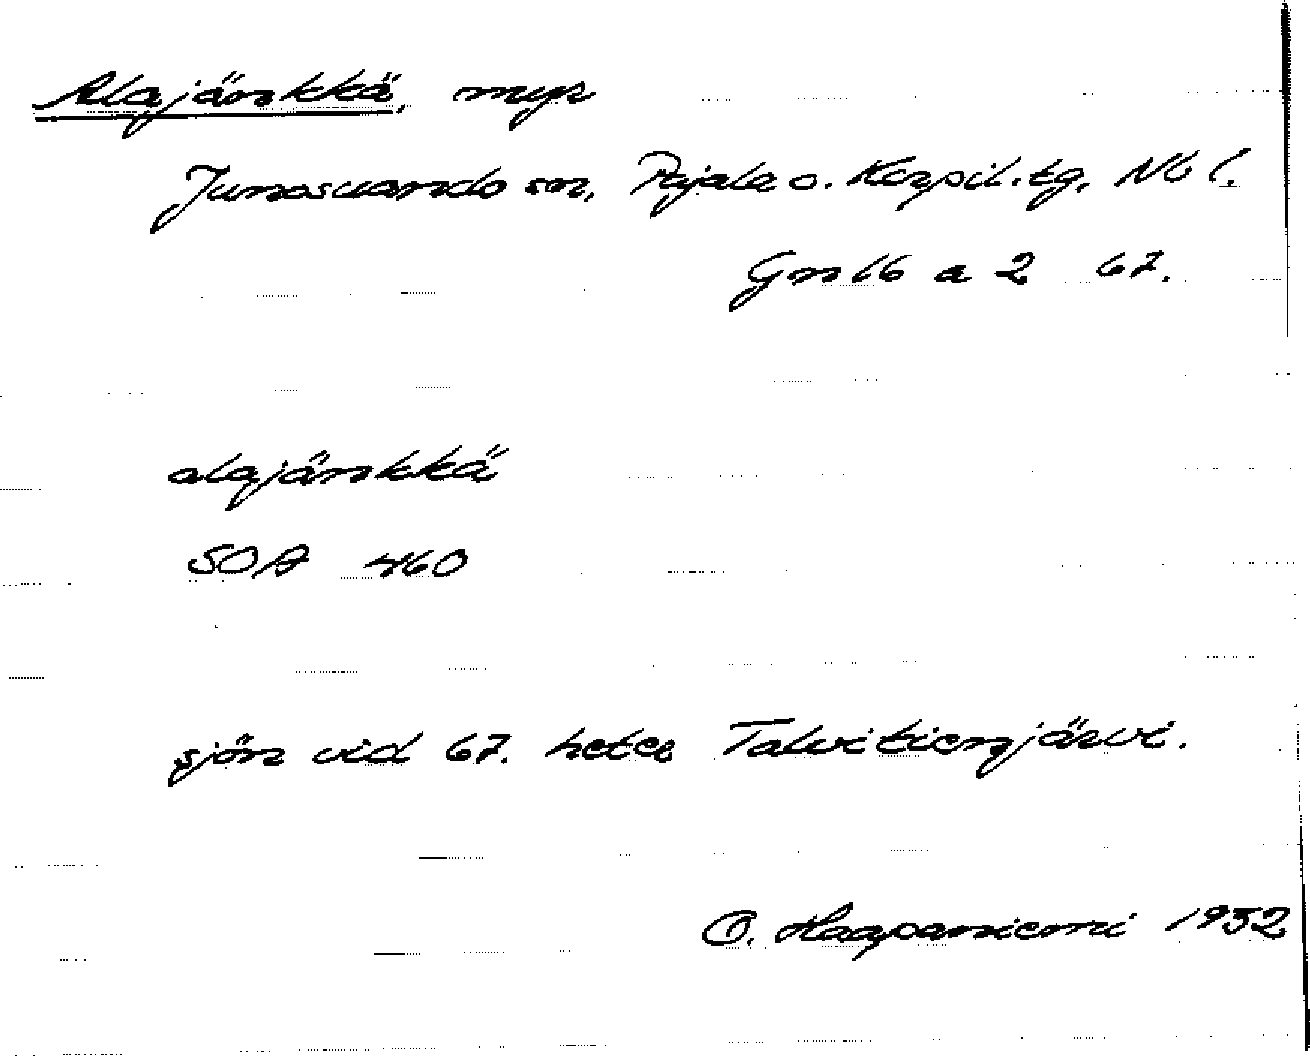 Alajänkkä, myr
Junosuando sn, Pajala o. Korpil. tg. Nb l.
Gn 16 a 2 67.
alajänkkä
SOA 460
sjön vid 67. heter Talvitienjärvi.
O. Haapaniemi 1932